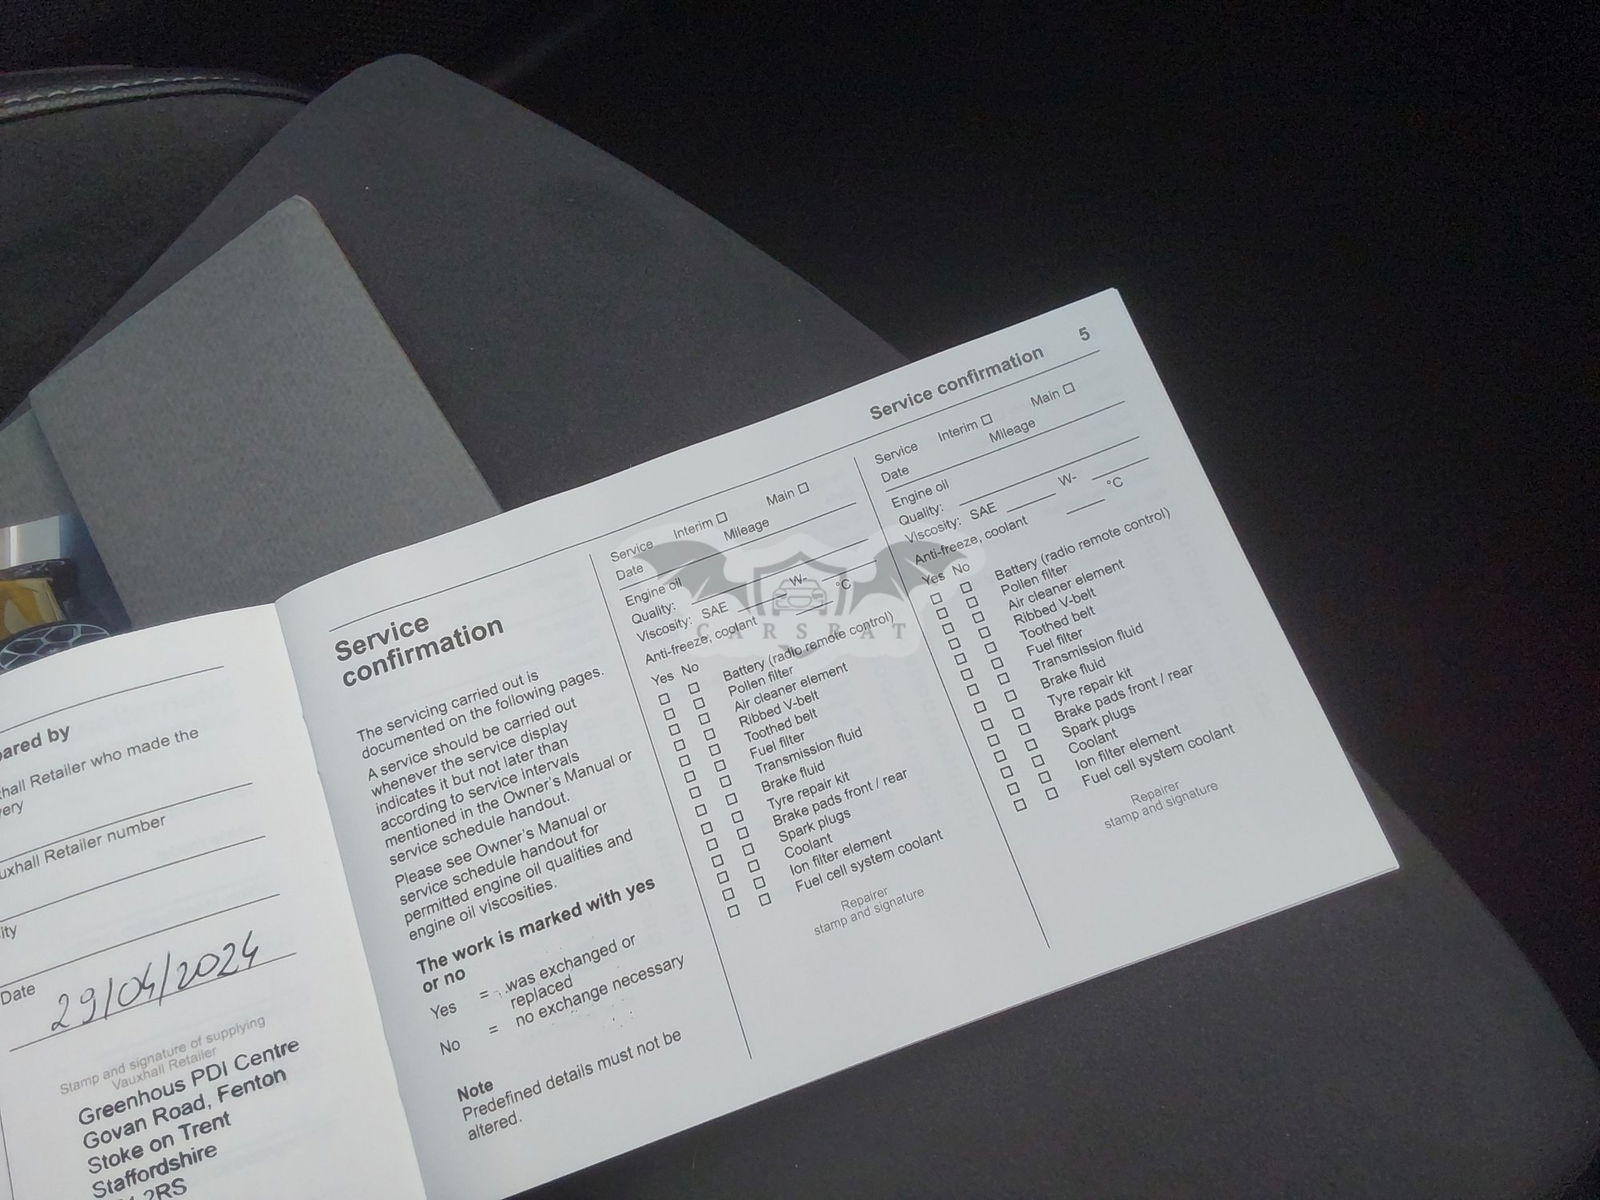 ared by
hall Retailer who made the
ery
uxhall Retailer number
ity
Date 29/04/2024
Stamp and signature of supplying
Vauxhall Retailer
Greenhous PDI Centre
Govan Road, Fenton
Stoke on Trent
Staffordshire
2RS
Service confirmation 5
Service
confirmation
The servicing carried out is
documented on the following pages.
A service should be carried out
whenever the service display
indicates it but not later than
according to service intervals
mentioned in the Owner's Manual or
service schedule handout.
Please see Owner's Manual or
service schedule handout for
permitted engine oil qualities and
engine oil viscosities.
The work is marked with yes
or no
Yes = was exchanged or
replaced
No = no exchange necessary
Note
Predefined details must not be
altered.
Service Interim Main
Date Mileage
Engine oil
Quality:
Viscosity: SAE W-
Anti-freeze, coolant °C
Yes No
Battery (radio remote control)
Pollen filter
Air cleaner element
Ribbed V-belt
Toothed belt
Fuel filter
Transmission fluid
Brake fluid
Tyre repair kit
Brake pads front / rear
Spark plugs
Coolant
Ion filter element
Fuel cell system coolant
Repairer
stamp and signature
Service Interim Main
Date Mileage
Engine oil
Quality:
Viscosity: SAE W-
Anti-freeze, coolant °C
Yes No
Battery (radio remote control)
Pollen filter
Air cleaner element
Ribbed V-belt
Toothed belt
Fuel filter
Transmission fluid
Brake fluid
Tyre repair kit
Brake pads front / rear
Spark plugs
Coolant
Ion filter element
Fuel cell system coolant
Repairer
stamp and signature
CARSBAT